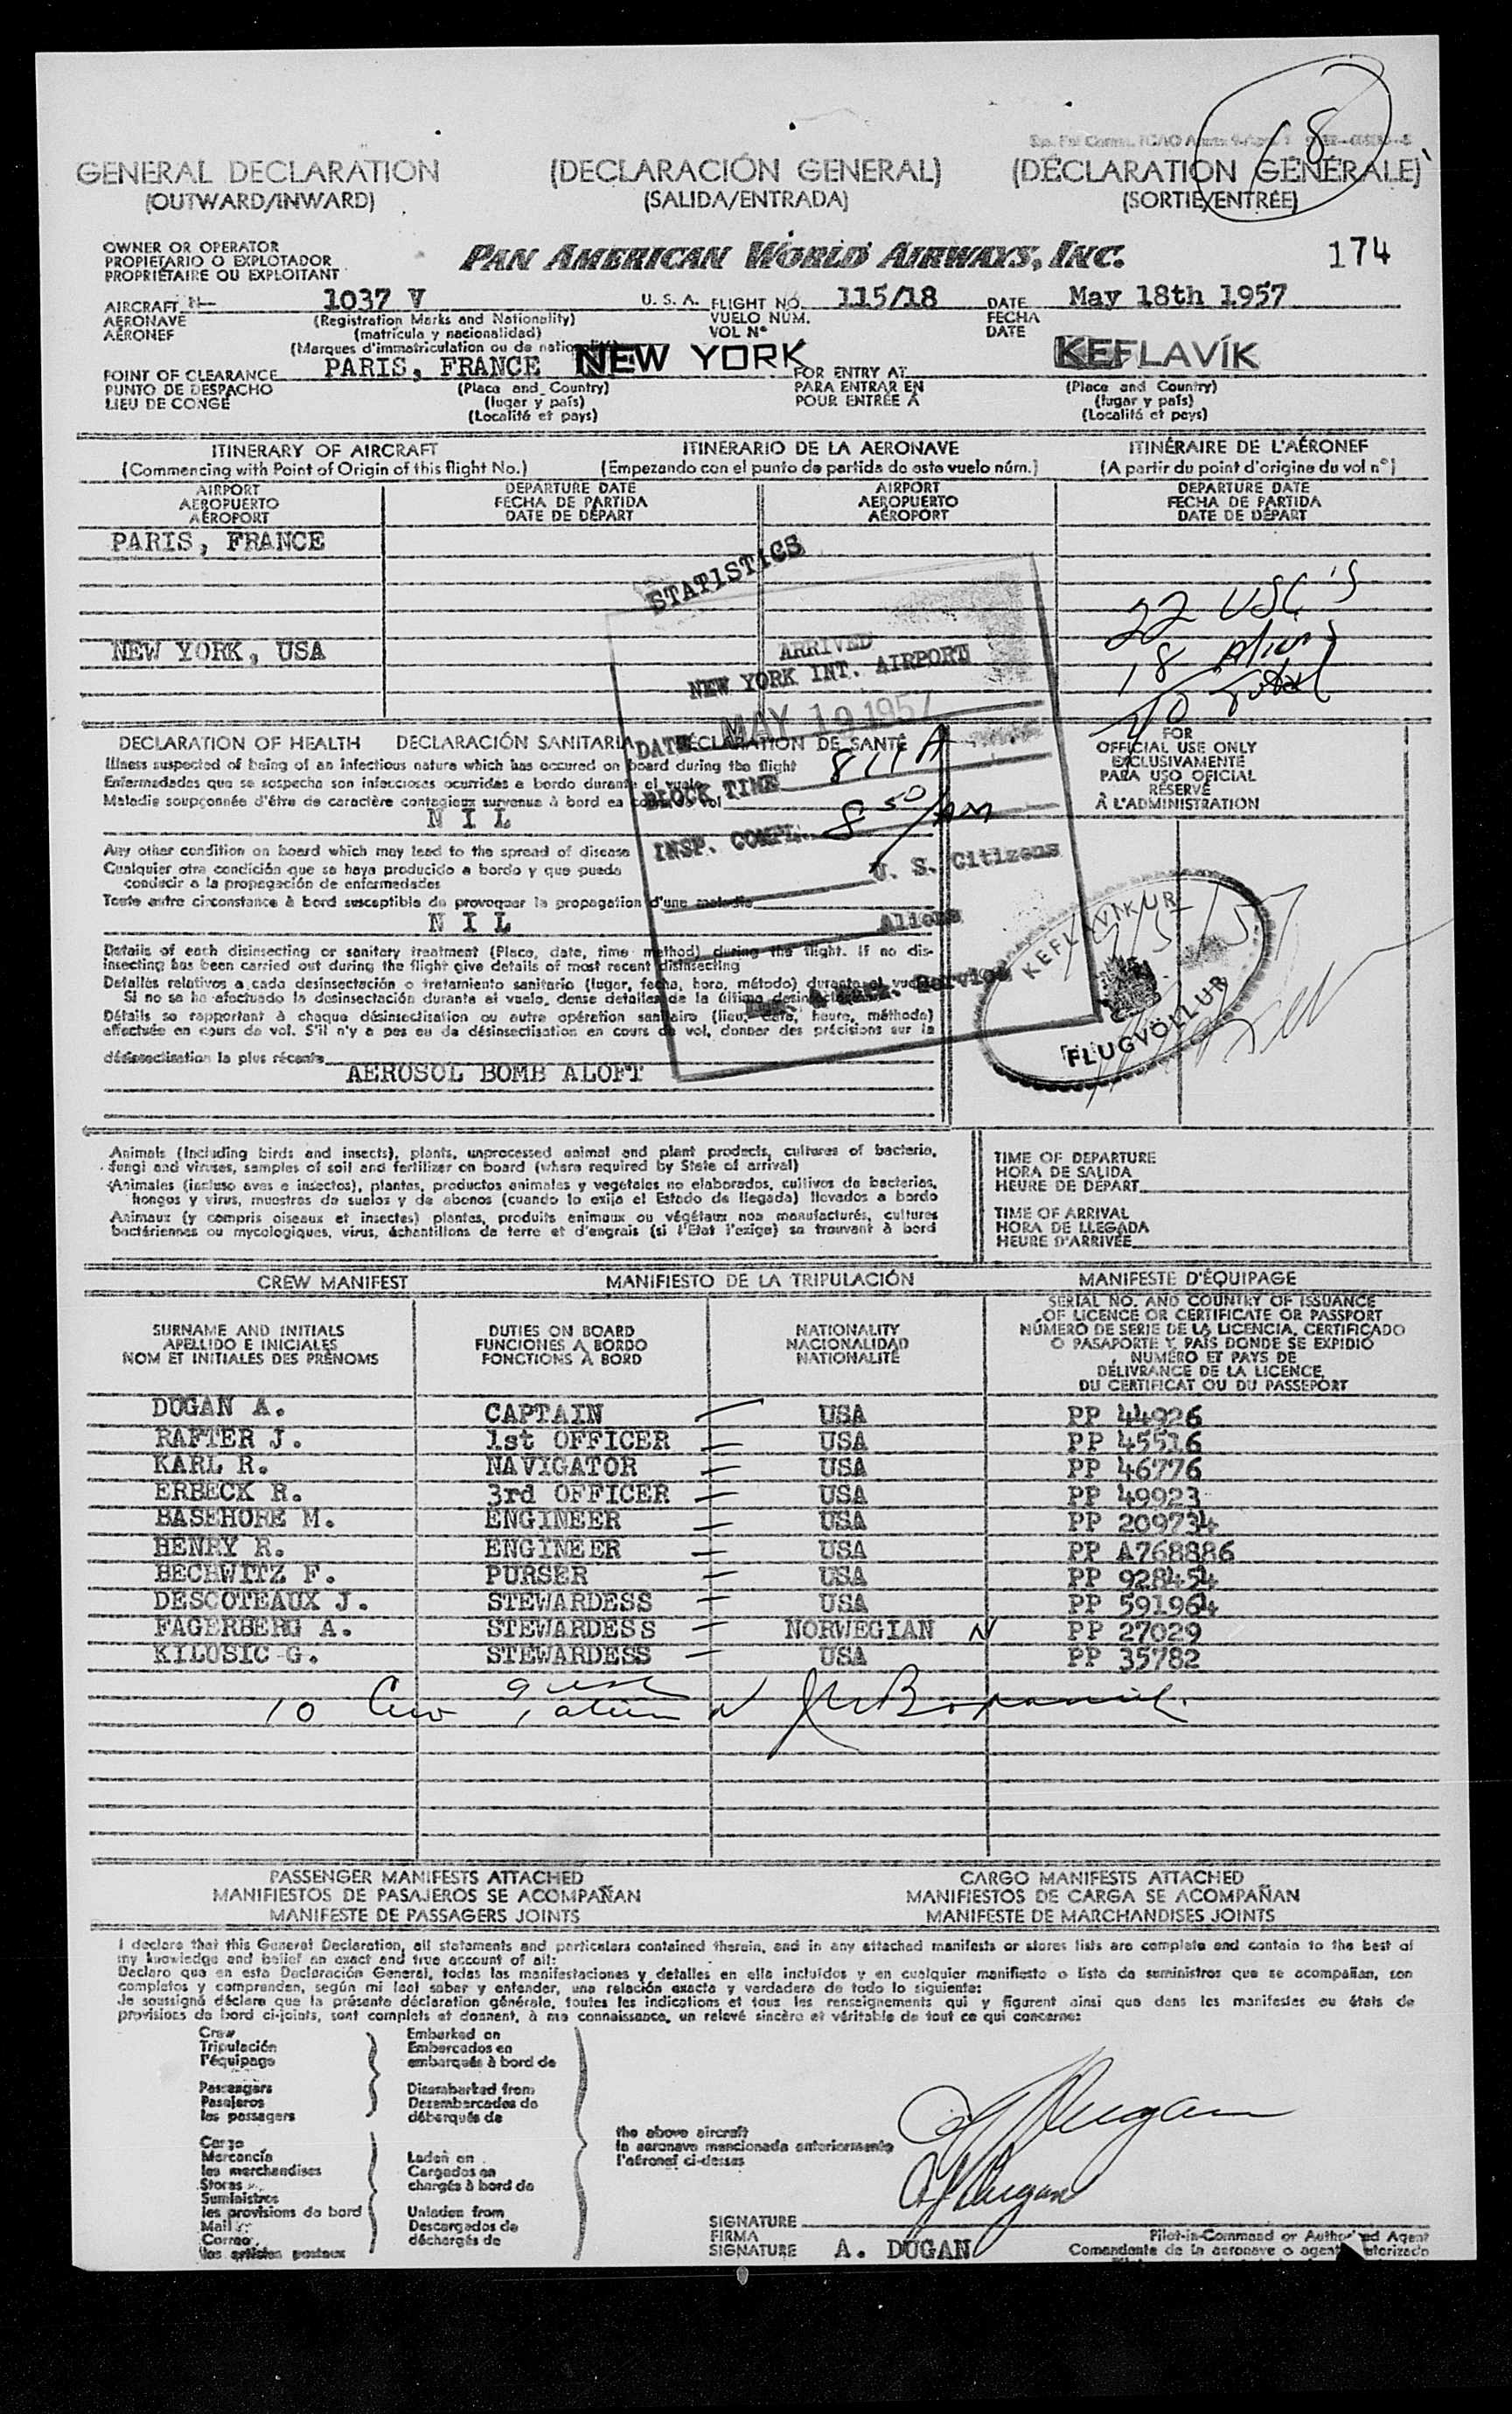 18
GENERAL DECLARATION (DECLARACIÓN GENERAL) (DÉCLARATION GÉNÉRALE)
(OUTWARD/INWARD) (SALIDA/ENTRADA) (SORTIE/ENTRÉE)
OWNER OR OPERATOR
PROPIETARIO O EXPLOTADOR
PROPRIÉTAIRE OU EXPLOITANT
PAN AMERICAN WORLD AIRWAYS, INC. 174
AIRCRAFT N- 1037 V U. S. A. FLIGHT NO. 115/18 DATE May 18th 1957
AERONAVE (Registration Marks and Nationality) VUELO NÚM. FECHA
AÉRONEF (matrícula y nacionalidad) VOL N° DATE
(Marques d'immatriculation ou de nationalité)
POINT OF CLEARANCE PARIS, FRANCE NEW YORK FOR ENTRY AT KEFLAVÍK
PUNTO DE DESPACHO (Place and Country) PARA ENTRAR EN (Place and Country)
LIEU DE CONGÉ (lugar y país) POUR ENTRÉE À (lugar y país)
(Localité et pays) (Localité et pays)
ITINERARY OF AIRCRAFT ITINERARIO DE LA AERONAVE ITINÉRAIRE DE L'AÉRONEF
(Commencing with Point of Origin of this flight No.) (Empezando con el punto de partida de este vuelo núm.) (A partir du point d'origine du vol n°)
AIRPORT DEPARTURE DATE AIRPORT DEPARTURE DATE
AEROPUERTO FECHA DE PARTIDA AEROPUERTO FECHA DE PARTIDA
AÉROPORT DATE DE DÉPART AÉROPORT DATE DE DÉPART
PARIS, FRANCE
NEW YORK, USA
22 USC'S
18 aliens
40 Total
STATISTICS
ARRIVED
NEW YORK INT. AIRPORT
DATE MAY 19 1957
BLOCK TIME 811 A
INSP. COMPL. 8 50/AM
U. S. Citizens
Aliens
Service
DECLARATION OF HEALTH DECLARACIÓN SANITARIA DÉCLARATION DE SANTÉ
Illness suspected of being of an infectious nature which has occured on board during the flight
Enfermedades que se sospecha son infecciosas ocurridas a bordo durante el vuelo
Maladie soupçonnée d'être de caractère contagieux survenue à bord en cours de vol
NIL
Any other condition on board which may lead to the spread of disease
Cualquier otra condición que se haya producido a bordo y que pueda
conducir a la propagación de enfermedades
Toute autre circonstance à bord susceptible de provoquer la propagation d'une maladie
NIL
Details of each disinsecting or sanitary treatment (Place, date, time method) during the flight. If no dis-
insecting has been carried out during the flight give details of most recent disinsecting
Detalles relativos a cada desinsectación o tratamiento sanitario (lugar, fecha, hora, método) durante el vuelo
Si no se ha efectuado la desinsectación durante el vuelo, dense detalles de la última desinsectación
Détails se rapportant à chaque désinsectisation ou autre opération sanitaire (lieu, date, heure, méthode)
effectuée en cours de vol. S'il n'y a pas eu de désinsectisation en cours de vol, donner des précisions sur la
désinsectisation la plus récente
AEROSOL BOMB ALOFT
FOR
OFFICIAL USE ONLY
EXCLUSIVAMENTE
PARA USO OFICIAL
RÉSERVÉ
À L'ADMINISTRATION
KEFLAVIKUR
FLUGVÖLLUR
Animals (Including birds and insects), plants, unprocessed animal and plant products, cultures of bacteria,
fungi and viruses, samples of soil and fertilizer on board (where required by State of arrival)
Animales (incluso aves e insectos), plantas, productos animales y vegetales no elaborados, cultivos de bacterias,
hongos y virus, muestras de suelos y de abonos (cuando lo exija el Estado de llegada) llevados a bordo
Animaux (y compris oiseaux et insectes) plantes, produits animaux ou végétaux non manufacturés, cultures
bactériennes ou mycologiques, virus, échantillons de terre et d'engrais (si l'Etat l'exige) se trouvant à bord
TIME OF DEPARTURE
HORA DE SALIDA
HEURE DE DÉPART
TIME OF ARRIVAL
HORA DE LLEGADA
HEURE D'ARRIVÉE
CREW MANIFEST MANIFIESTO DE LA TRIPULACIÓN MANIFESTE D'ÉQUIPAGE
SURNAME AND INITIALS DUTIES ON BOARD NATIONALITY
APELLIDO E INICIALES FUNCIONES A BORDO NACIONALIDAD
NOM ET INITIALES DES PRÉNOMS FONCTIONS À BORD NATIONALITÉ
SERIAL NO. AND COUNTRY OF ISSUANCE
OF LICENCE OR CERTIFICATE OR PASSPORT
NÚMERO DE SERIE DE LA LICENCIA, CERTIFICADO
O PASAPORTE Y PAÍS DONDE SE EXPIDIÓ
NUMÉRO ET PAYS DE
DÉLIVRANCE DE LA LICENCE,
DU CERTIFICAT OU DU PASSEPORT
DUGAN A. CAPTAIN USA PP 44926
RAFTER J. 1st OFFICER USA PP 45516
KARL R. NAVIGATOR USA PP 46776
ERBECK R. 3rd OFFICER USA PP 49923
BASEHORE M. ENGINEER USA PP 209734
HENRY R. ENGINEER USA PP A768886
BECHWITZ F. PURSER USA PP 928454
DESCOTEAUX J. STEWARDESS USA PP 591964
FAGERBERG A. STEWARDESS NORWEGIAN N PP 27029
KILOSIC G. STEWARDESS USA PP 35782
10 Crew 9 usc
1 alien N
PASSENGER MANIFESTS ATTACHED CARGO MANIFESTS ATTACHED
MANIFIESTOS DE PASAJEROS SE ACOMPAÑAN MANIFIESTOS DE CARGA SE ACOMPAÑAN
MANIFESTE DE PASSAGERS JOINTS MANIFESTE DE MARCHANDISES JOINTS
I declare that this General Declaration, all statements and particulars contained therein, and in any attached manifests or stores lists are complete and contain to the best of
my knowledge and belief an exact and true account of all:
Declaro que en esta Declaración General, todas las manifestaciones y detalles en ella incluídos y en cualquier manifiesto o lista de suministros que se acompañan, son
completos y comprenden, según mi leal saber y entender, una relación exacta y verdadera de todo lo siguiente:
Je soussigné déclare que la présente déclaration générale, toutes les indications et tous les renseignements qui y figurent ainsi que dans les manifestes ou états de
provisions de bord ci-joints, sont complets et donnent, à ma connaissance, un relevé sincère et véritable de tout ce qui concerne:
Crew Embarked on
Tripulación Embarcados en
l'équipage embarqués à bord de
Passengers Disembarked from
Pasajeros Desembarcados de
les passagers débarqués de
the above aircraft
la aeronave mencionada anteriormente
l'aéronef ci-dessus
Cargo
Mercancía Laden on
les marchandises Cargados en
Stores chargés à bord de
Suministros
les provisions de bord Unladen from
Mail Descargados de
Correo déchargés de
les articles postaux
A J Dugan
A J Dugan
SIGNATURE
FIRMA Pilot-in-Command or Authorized Agent
SIGNATURE A. DUGAN Comandante de la aeronave o agente autorizado